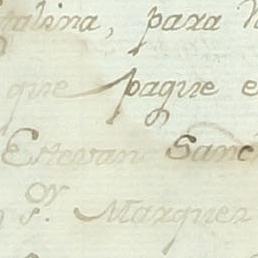 talina, para
que pague
Estevan Sanc
Marquez